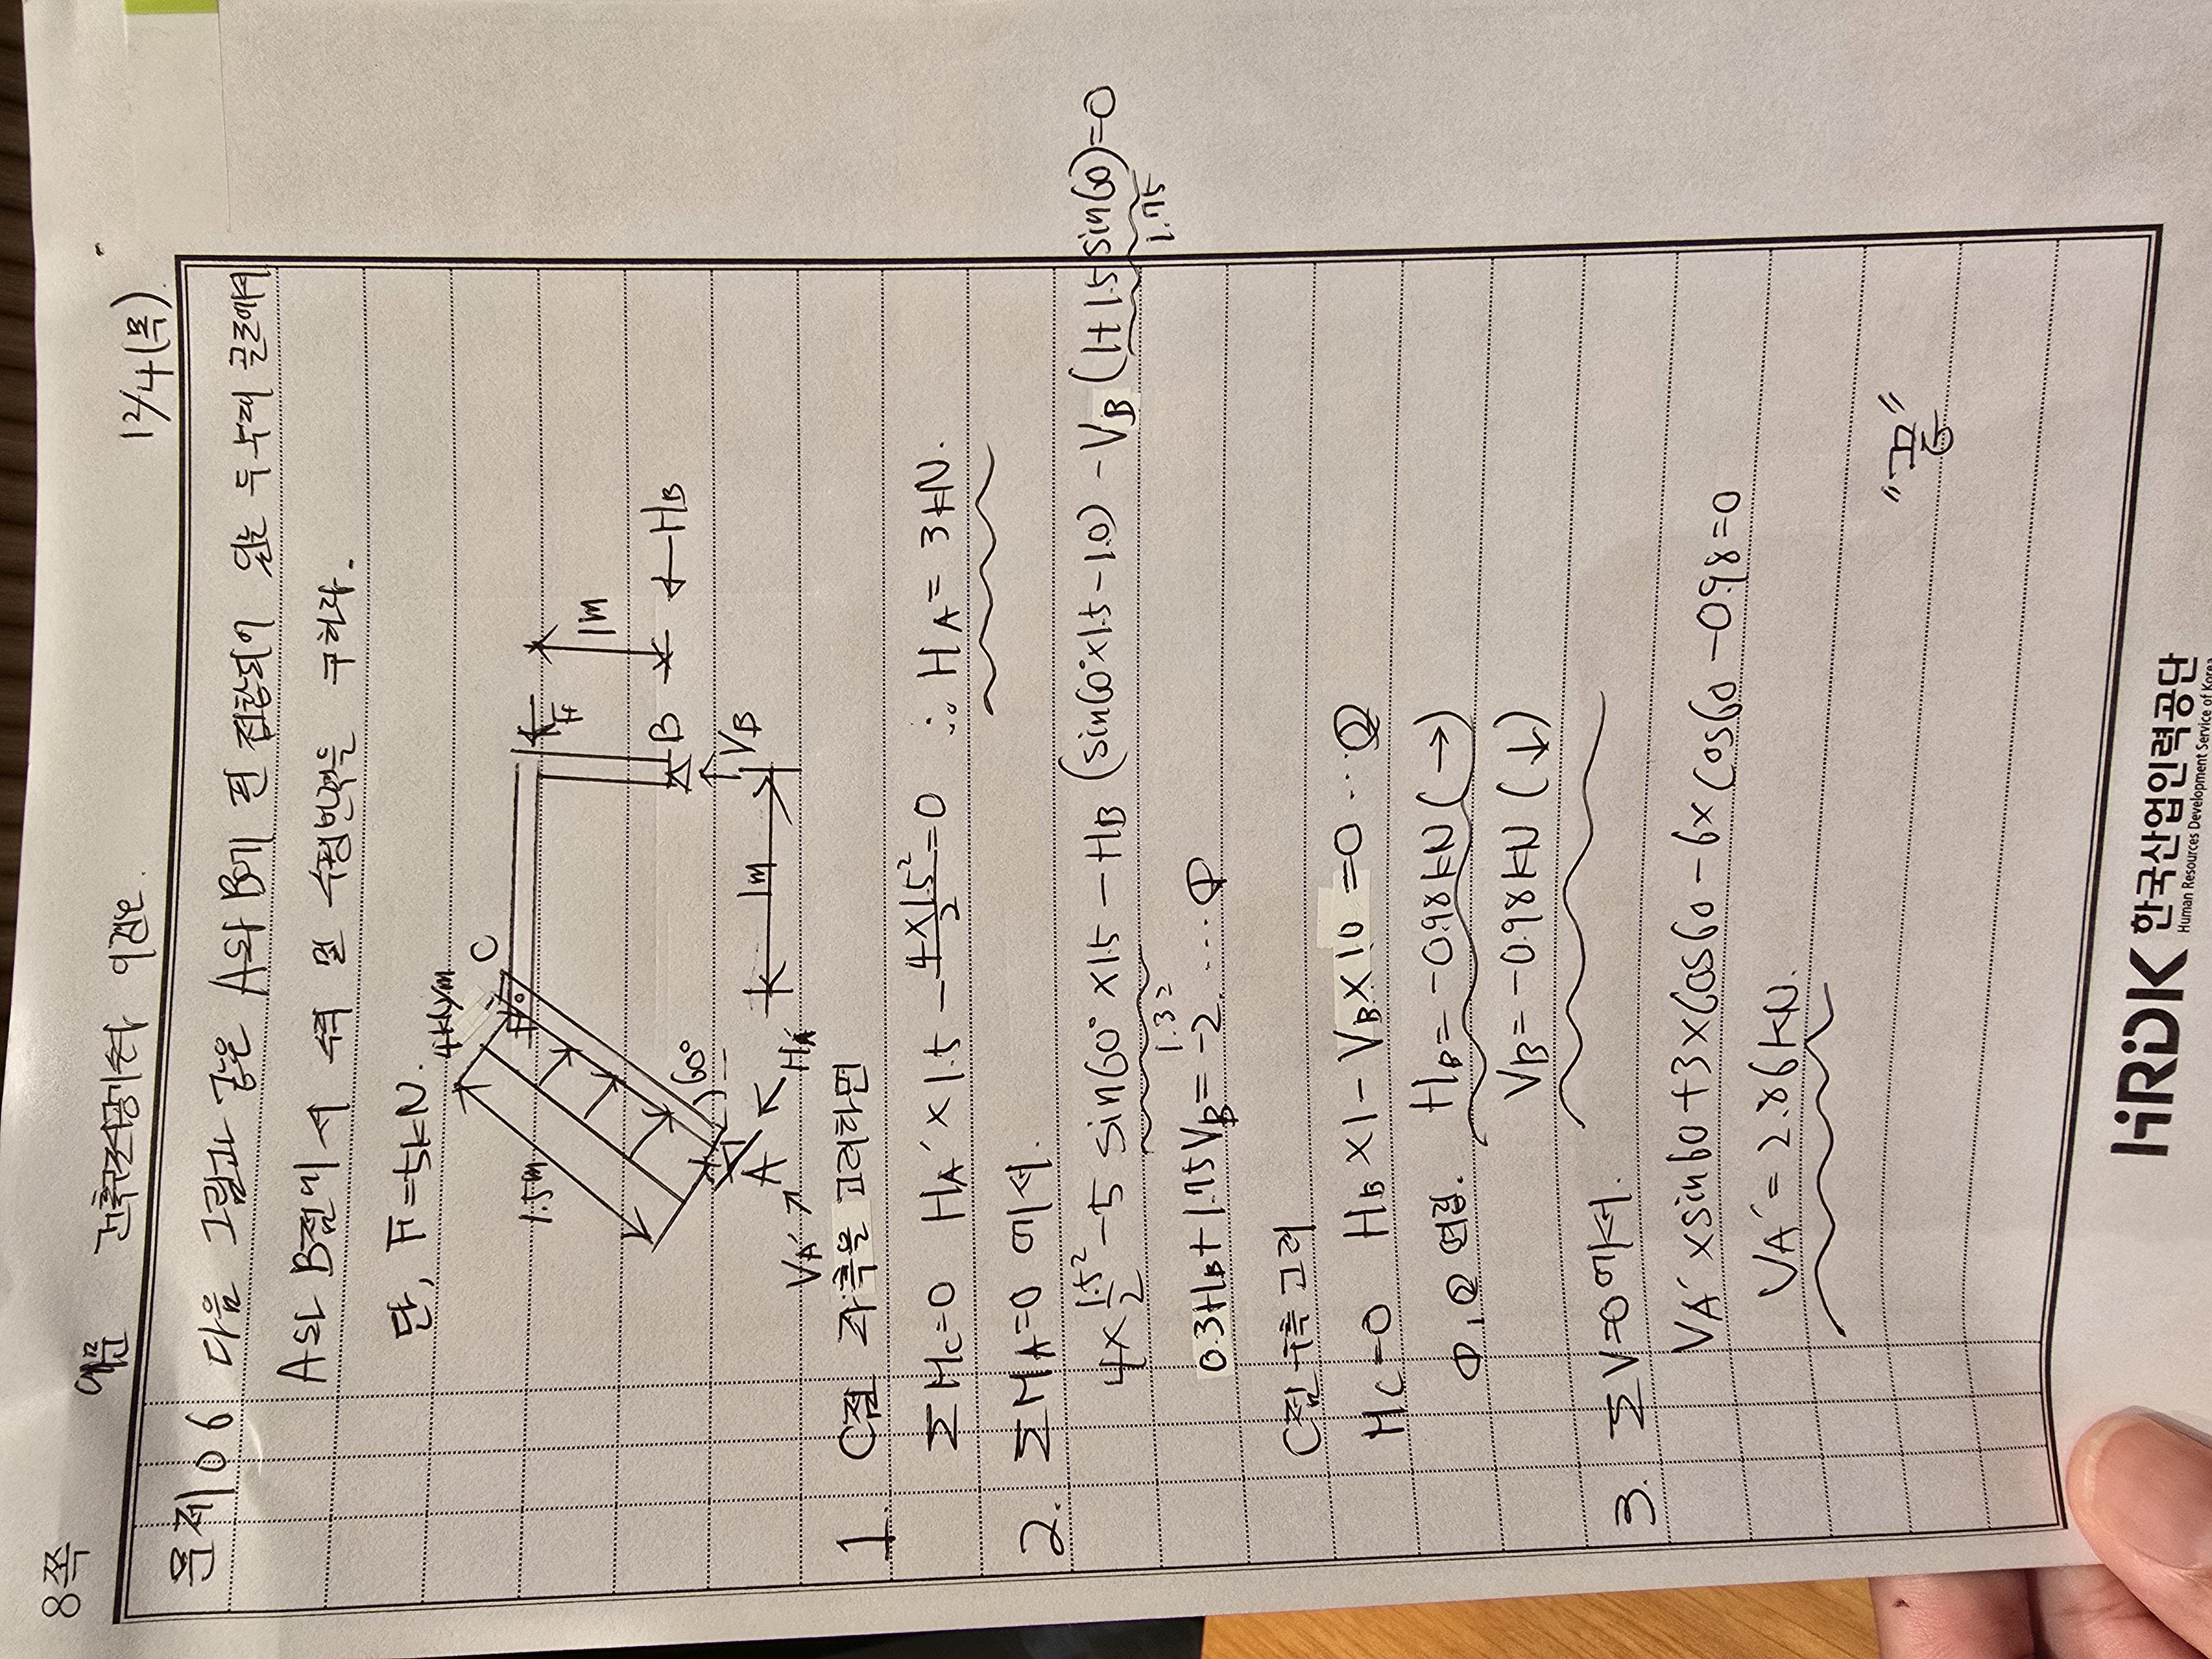 8쪽
예문 건축구조기술사 9회.
12/4(목).
문제 06 다음 그림과 같은 A와 B에 핀 접합되어 있는 두 부재 골조에서
A와 B점에서 수직 및 수평반력을 구하라.
단, F=5kN.
4kN/m
C
1.5m
F
1m
60°
A
B
HB
VA'
HA'
VB
1m
1. C점 좌측을 고려하면
ΣMc=0 HA' × 1.5 - 4×1.5²/2 = 0 ∴ HA = 3kN.
2. ΣMA=0 에서.
4× 1.5²/2 - 5 sin60° ×1.5 - HB (sin60°×1.5-1.0) - VB (1+1.5 sin60)=0
1.32
1.75
0.3HB+1.75VB = -2. ... ①
C점 우측 고려
Mc=0 HB×1 - VB×1.0 =0 ... ②
①, ② 연립. HB= -0.98kN (→)
VB= -0.98kN (↓)
3. ΣV=0에서.
VA'×sin60+3×cos60-6×cos60-0.98=0
VA' = 2.86kN.
"끝"
HRDK 한국산업인력공단
Human Resources Development Service of Korea